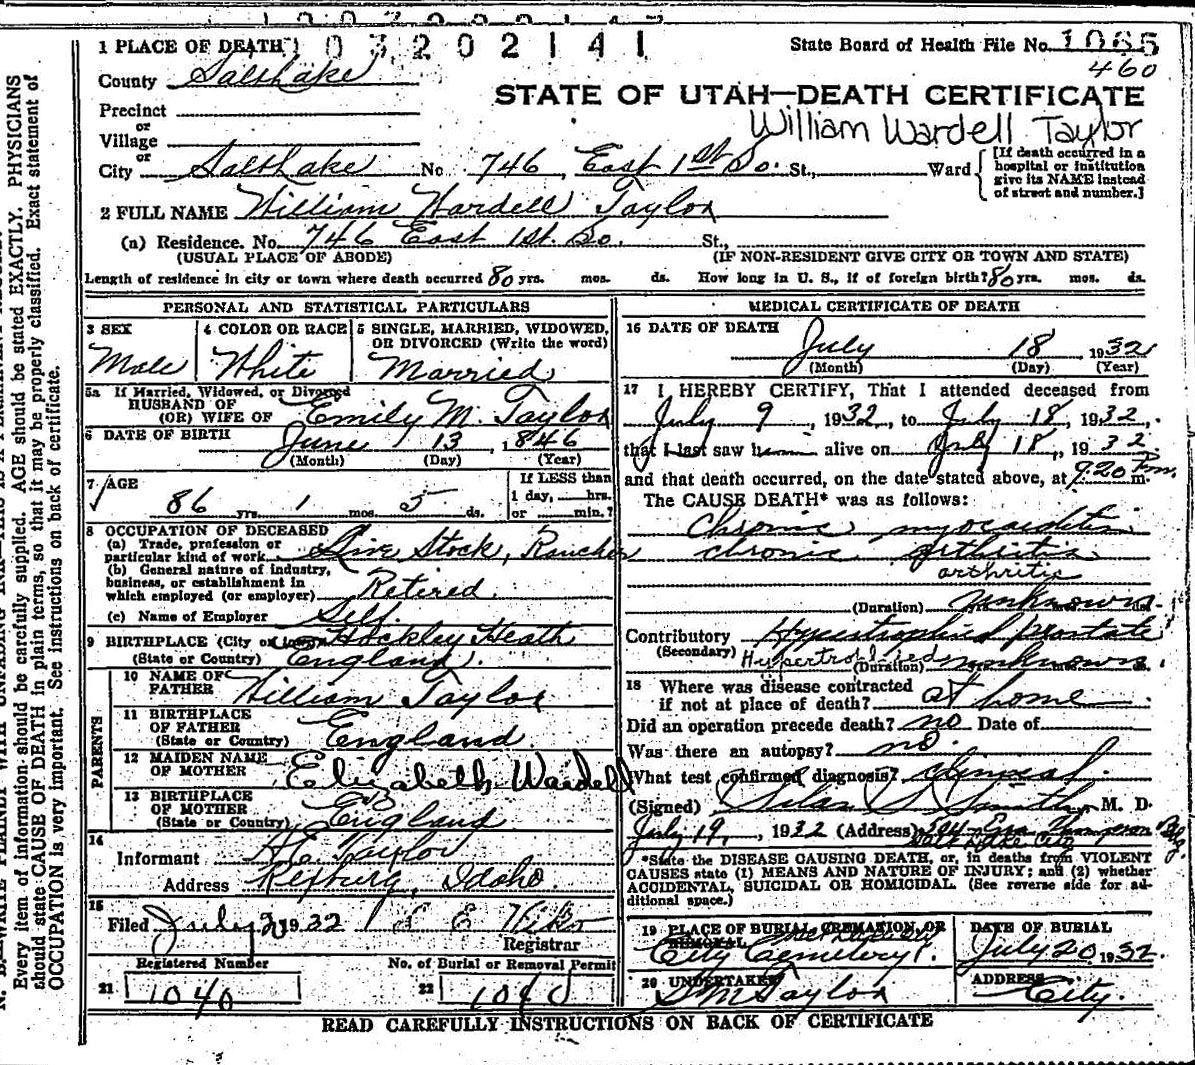 1 0 3 2 0 2 1 4 1
1 PLACE OF DEATH
State Board of Health File No. 1065
460
County Salt Lake
STATE OF UTAH—DEATH CERTIFICATE
Precinct
or
Village
William Wardell Taylor
or
City Salt Lake No. 746 East 1st So. St., Ward
[If death occurred in a hospital or institution give its NAME instead of street and number.]
2 FULL NAME William Wardell Taylor
(a) Residence. No. 746 East 1st. So. St.,
(USUAL PLACE OF ABODE) (IF NON-RESIDENT GIVE CITY OR TOWN AND STATE)
Length of residence in city or town where death occurred 80 yrs. mos. ds. How long in U. S., if of foreign birth? 80 yrs. mos. ds.
PERSONAL AND STATISTICAL PARTICULARS
3 SEX
Male
4 COLOR OR RACE
White
5 SINGLE, MARRIED, WIDOWED,
OR DIVORCED (Write the word)
Married
5a If Married, Widowed, or Divorced
HUSBAND OF
(OR) WIFE OF Emily M. Taylor
6 DATE OF BIRTH June 13, 1846
(Month) (Day) (Year)
7 AGE
86 yrs. 1 mos. 5 ds.
If LESS than
1 day, hrs.
or min.?
8 OCCUPATION OF DECEASED
(a) Trade, profession or
particular kind of work Live Stock, Rancher
(b) General nature of industry,
business, or establishment in
which employed (or employer) Retired
(c) Name of Employer Self.
9 BIRTHPLACE (City or town) Hockley Heath
(State or Country) England.
PARENTS
10 NAME OF
FATHER William Taylor
11 BIRTHPLACE
OF FATHER
(State or Country) England
12 MAIDEN NAME
OF MOTHER Elizabeth Wardell
13 BIRTHPLACE
OF MOTHER
(State or Country) England
14
Informant Taylor
Address Rexburg, Idaho.
15
Filed July 1932
Registrar
Registered Number
21 1040
No. of Burial or Removal Permit
22 1040
MEDICAL CERTIFICATE OF DEATH
16 DATE OF DEATH
July 18, 1932
(Month) (Day) (Year)
17 I HEREBY CERTIFY, That I attended deceased from
July 9, 1932, to July 18, 1932,
that I last saw him alive on July 18, 1932
and that death occurred, on the date stated above, at 9:20 P.m.
The CAUSE DEATH* was as follows:
Chronic myocarditis
chronic arthritis
arthritis
(Duration) unknown ds.
Contributory Hypertrophied prostate
(Secondary) Hypertrophied (Duration) unknown
18 Where was disease contracted
if not at place of death? at home
Did an operation precede death? no Date of
Was there an autopsy? no.
What test confirmed diagnosis? clinical
(Signed) Silas S. Smith, M. D.
July 19, 1932 (Address) Thompson Bldg.
Salt Lake City
*State the DISEASE CAUSING DEATH, or, in deaths from VIOLENT
CAUSES state (1) MEANS AND NATURE OF INJURY; and (2) whether
ACCIDENTAL, SUICIDAL OR HOMICIDAL. (See reverse side for ad-
ditional space.)
19 PLACE OF BURIAL, CREMATION, OR
REMOVAL
City Cemetery.
DATE OF BURIAL
July 20, 1932.
20 UNDERTAKER
S M Taylor
ADDRESS
City.
READ CAREFULLY INSTRUCTIONS ON BACK OF CERTIFICATE
Every item of information should be carefully supplied. AGE should be stated EXACTLY. PHYSICIANS
should state CAUSE OF DEATH in plain terms, so that it may be properly classified. Exact statement of
OCCUPATION is very important. See instructions on back of certificate.